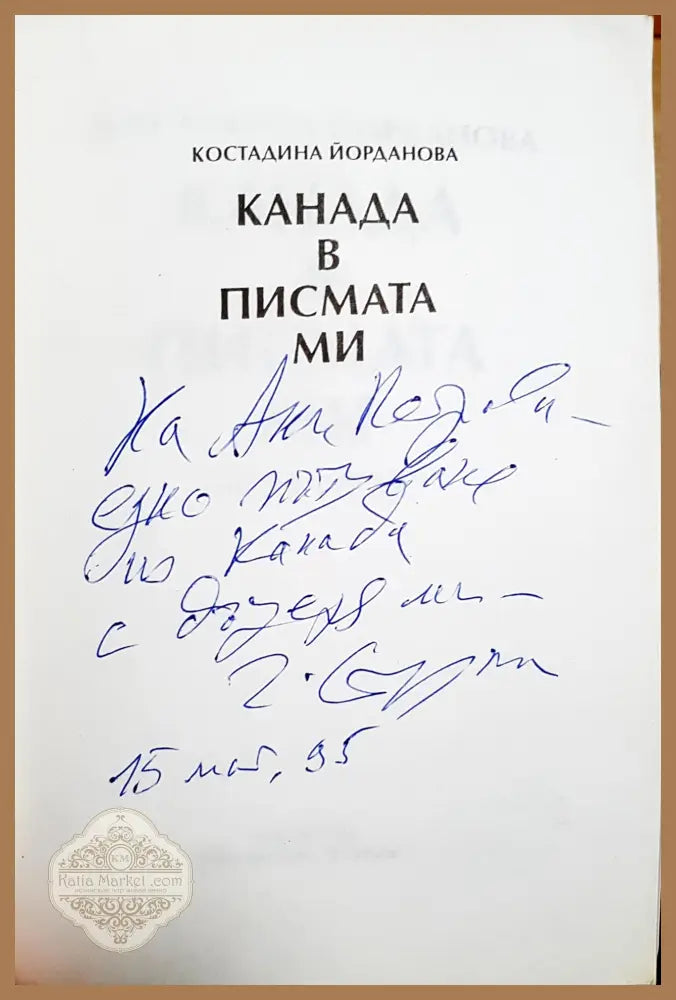 КОСТАДИНА ЙОРДАНОВА
КАНАДА
В
ПИСМАТА
МИ
На Ани
едно пътуване
из Канада
с дъщеря ми –
15 май, 95
KM
Katia Market .com